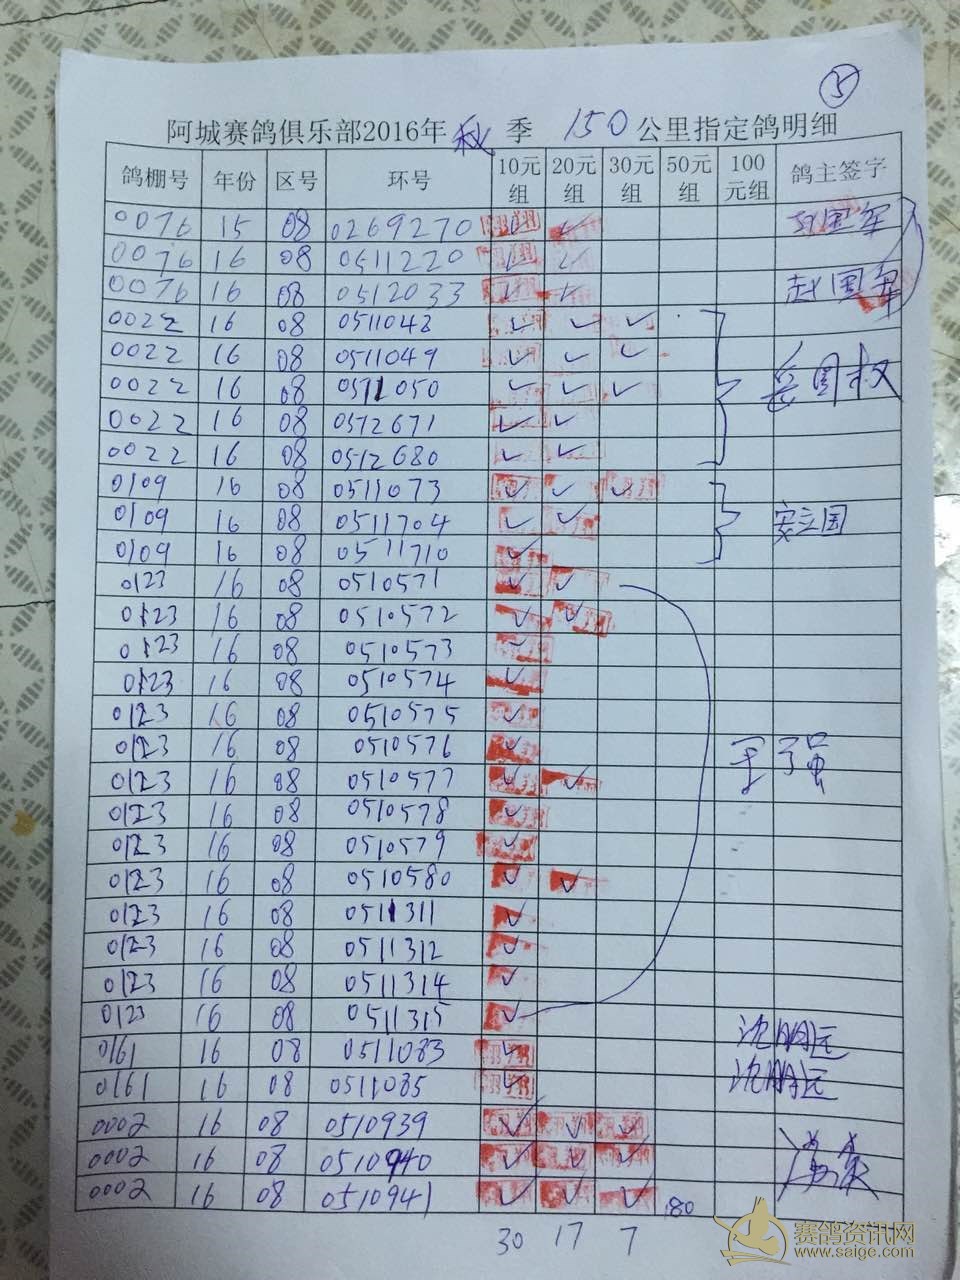 ⑤
阿城赛鸽俱乐部2016年秋季 150公里指定鸽明细
鸽棚号 年份 区号 环号 10元组 20元组 30元组 50元组 100元组 鸽主签字
0076 15 08 0269270 ✓ ✓ 赵国军
0076 16 08 0511220 ✓ ✓
0076 16 08 0512033 ✓ ✓ 赵国军
0022 16 08 0511042 ✓ ✓ ✓
0022 16 08 0511049 ✓ ✓ ✓
0022 16 08 0511050 ✓ ✓ ✓ 岳国权
0022 16 08 0512671 ✓ ✓
0022 16 08 0512680 ✓ ✓
0109 16 08 0511073 ✓ ✓ ✓
0109 16 08 0511704 ✓ ✓ 窦立国
0109 16 08 0511710 ✓
0123 16 08 0510571 ✓ ✓
0123 16 08 0510572 ✓ ✓
0123 16 08 0510573 ✓
0123 16 08 0510574 ✓
0123 16 08 0510575 ✓
0123 16 08 0510576 ✓ 王子強
0123 16 08 0510577 ✓ ✓
0123 16 08 0510578 ✓
0123 16 08 0510579 ✓
0123 16 08 0510580 ✓ ✓
0123 16 08 0511311 ✓
0123 16 08 0511312 ✓
0123 16 08 0511314 ✓
0123 16 08 0511315 ✓
0161 16 08 0511083 ✓ 沈明远
0161 16 08 0511085 ✓ 沈明远
0002 16 08 0510939 ✓ ✓ ✓
0002 16 08 0510940 ✓ ✓ ✓
0002 16 08 0510941 ✓ ✓ ✓ 180
30 17 7
赛鸽资讯网
www.saige.com